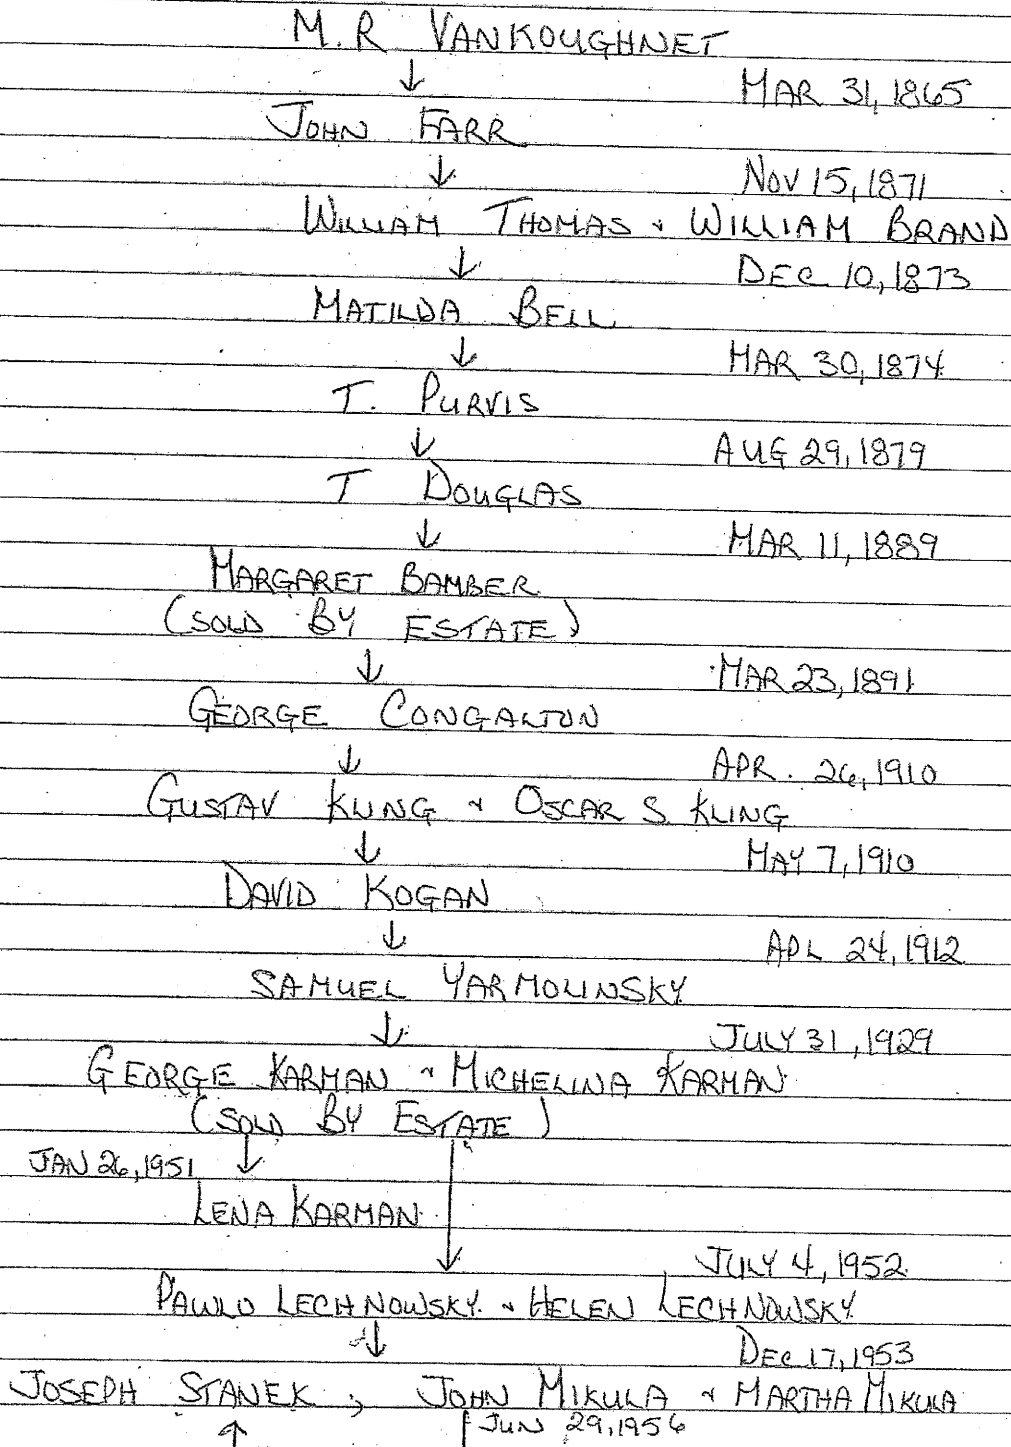 M.R VANKOUGHNET
↓ MAR 31, 1865
JOHN FARR
↓ NOV 15, 1871
WILLIAM THOMAS & WILLIAM BRAND
↓ DEC 10, 1873
MATILDA BELL
↓ MAR 30, 1874
T. PURVIS
↓ AUG 29, 1879
T DOUGLAS
↓ MAR 11, 1889
MARGARET BAMBER
(SOLD BY ESTATE)
↓ MAR 23, 1891
GEORGE CONGALTON
↓ APR. 26, 1910
GUSTAV KLING & OSCAR S. KLING
↓ MAY 7, 1910
DAVID KOGAN
↓ APL 24, 1912
SAMUEL YARMOLINSKY
↓ JULY 31, 1929
GEORGE KARMAN & MICHELINA KARMAN
(SOLD BY ESTATE)
JAN 26, 1951 ↓
LENA KARMAN
↓ JULY 4, 1952
PAWLO LECHNOWSKY & HELEN LECHNOWSKY
↓ DEC 17, 1953
JOSEPH STANEK, JOHN MIKULA & MARTHA MIKULA
↑ JUN 29, 1956